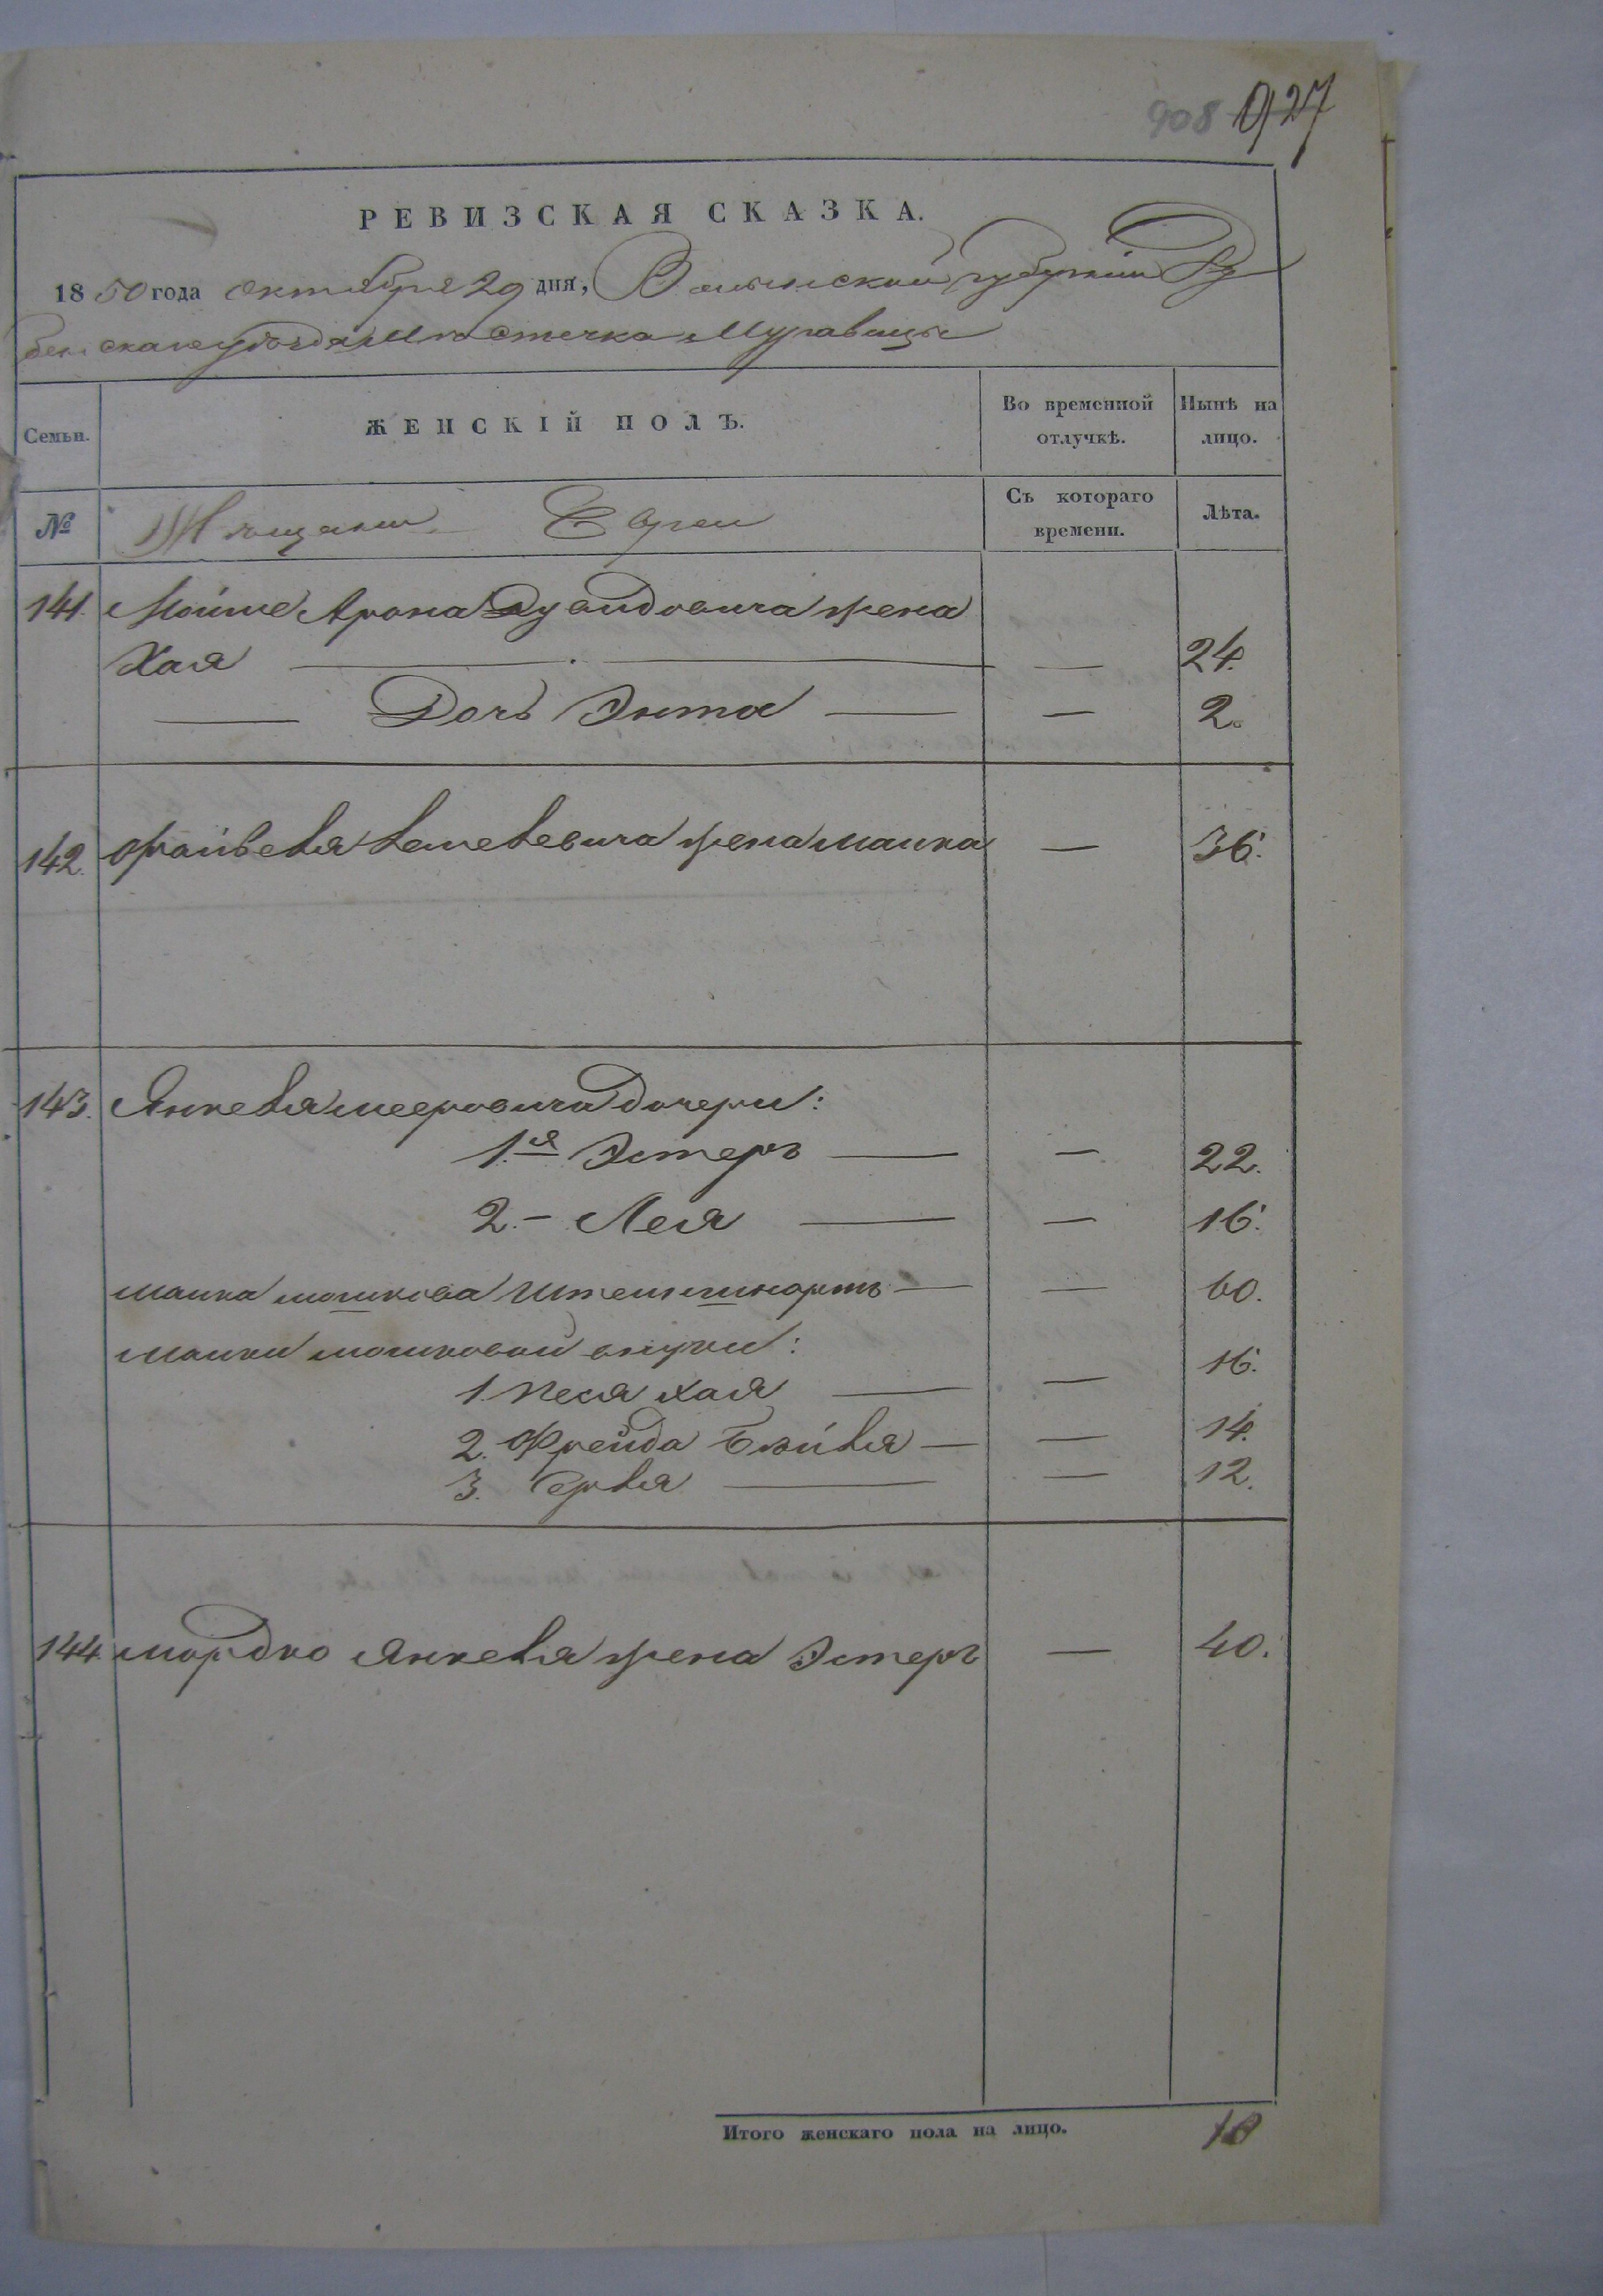 908 927
РЕВИЗСКАЯ СКАЗКА.
1850 года октября 29 дня, Волынской губернии Ду
бенскаго уѣзда Мѣстечка Муравицы
Семьи. ЖЕНСКІЙ ПОЛЪ. Во временной отлучкѣ. Нынѣ на лицо.
№ Мѣщане Евреи Съ котораго времени. Лѣта.
141. Мойше Арона Дувидовича жена
Хая — — 24.
— Дочь Энта — — 2.
142. жена Малка — 36.
143. Янкеля Мееровича дочери:
1.я Эстеръ — — 22.
2. – Лея — — 16.
Малка Мошкова — — 60.
Малки Мошковой внучки:
1. Песя Хая — — 16.
2. Фрейда Бейля — — 14.
3. — — 12.
144. Мордко Янкеля жена Эстеръ — 40.
Итого женскаго пола на лицо. 10